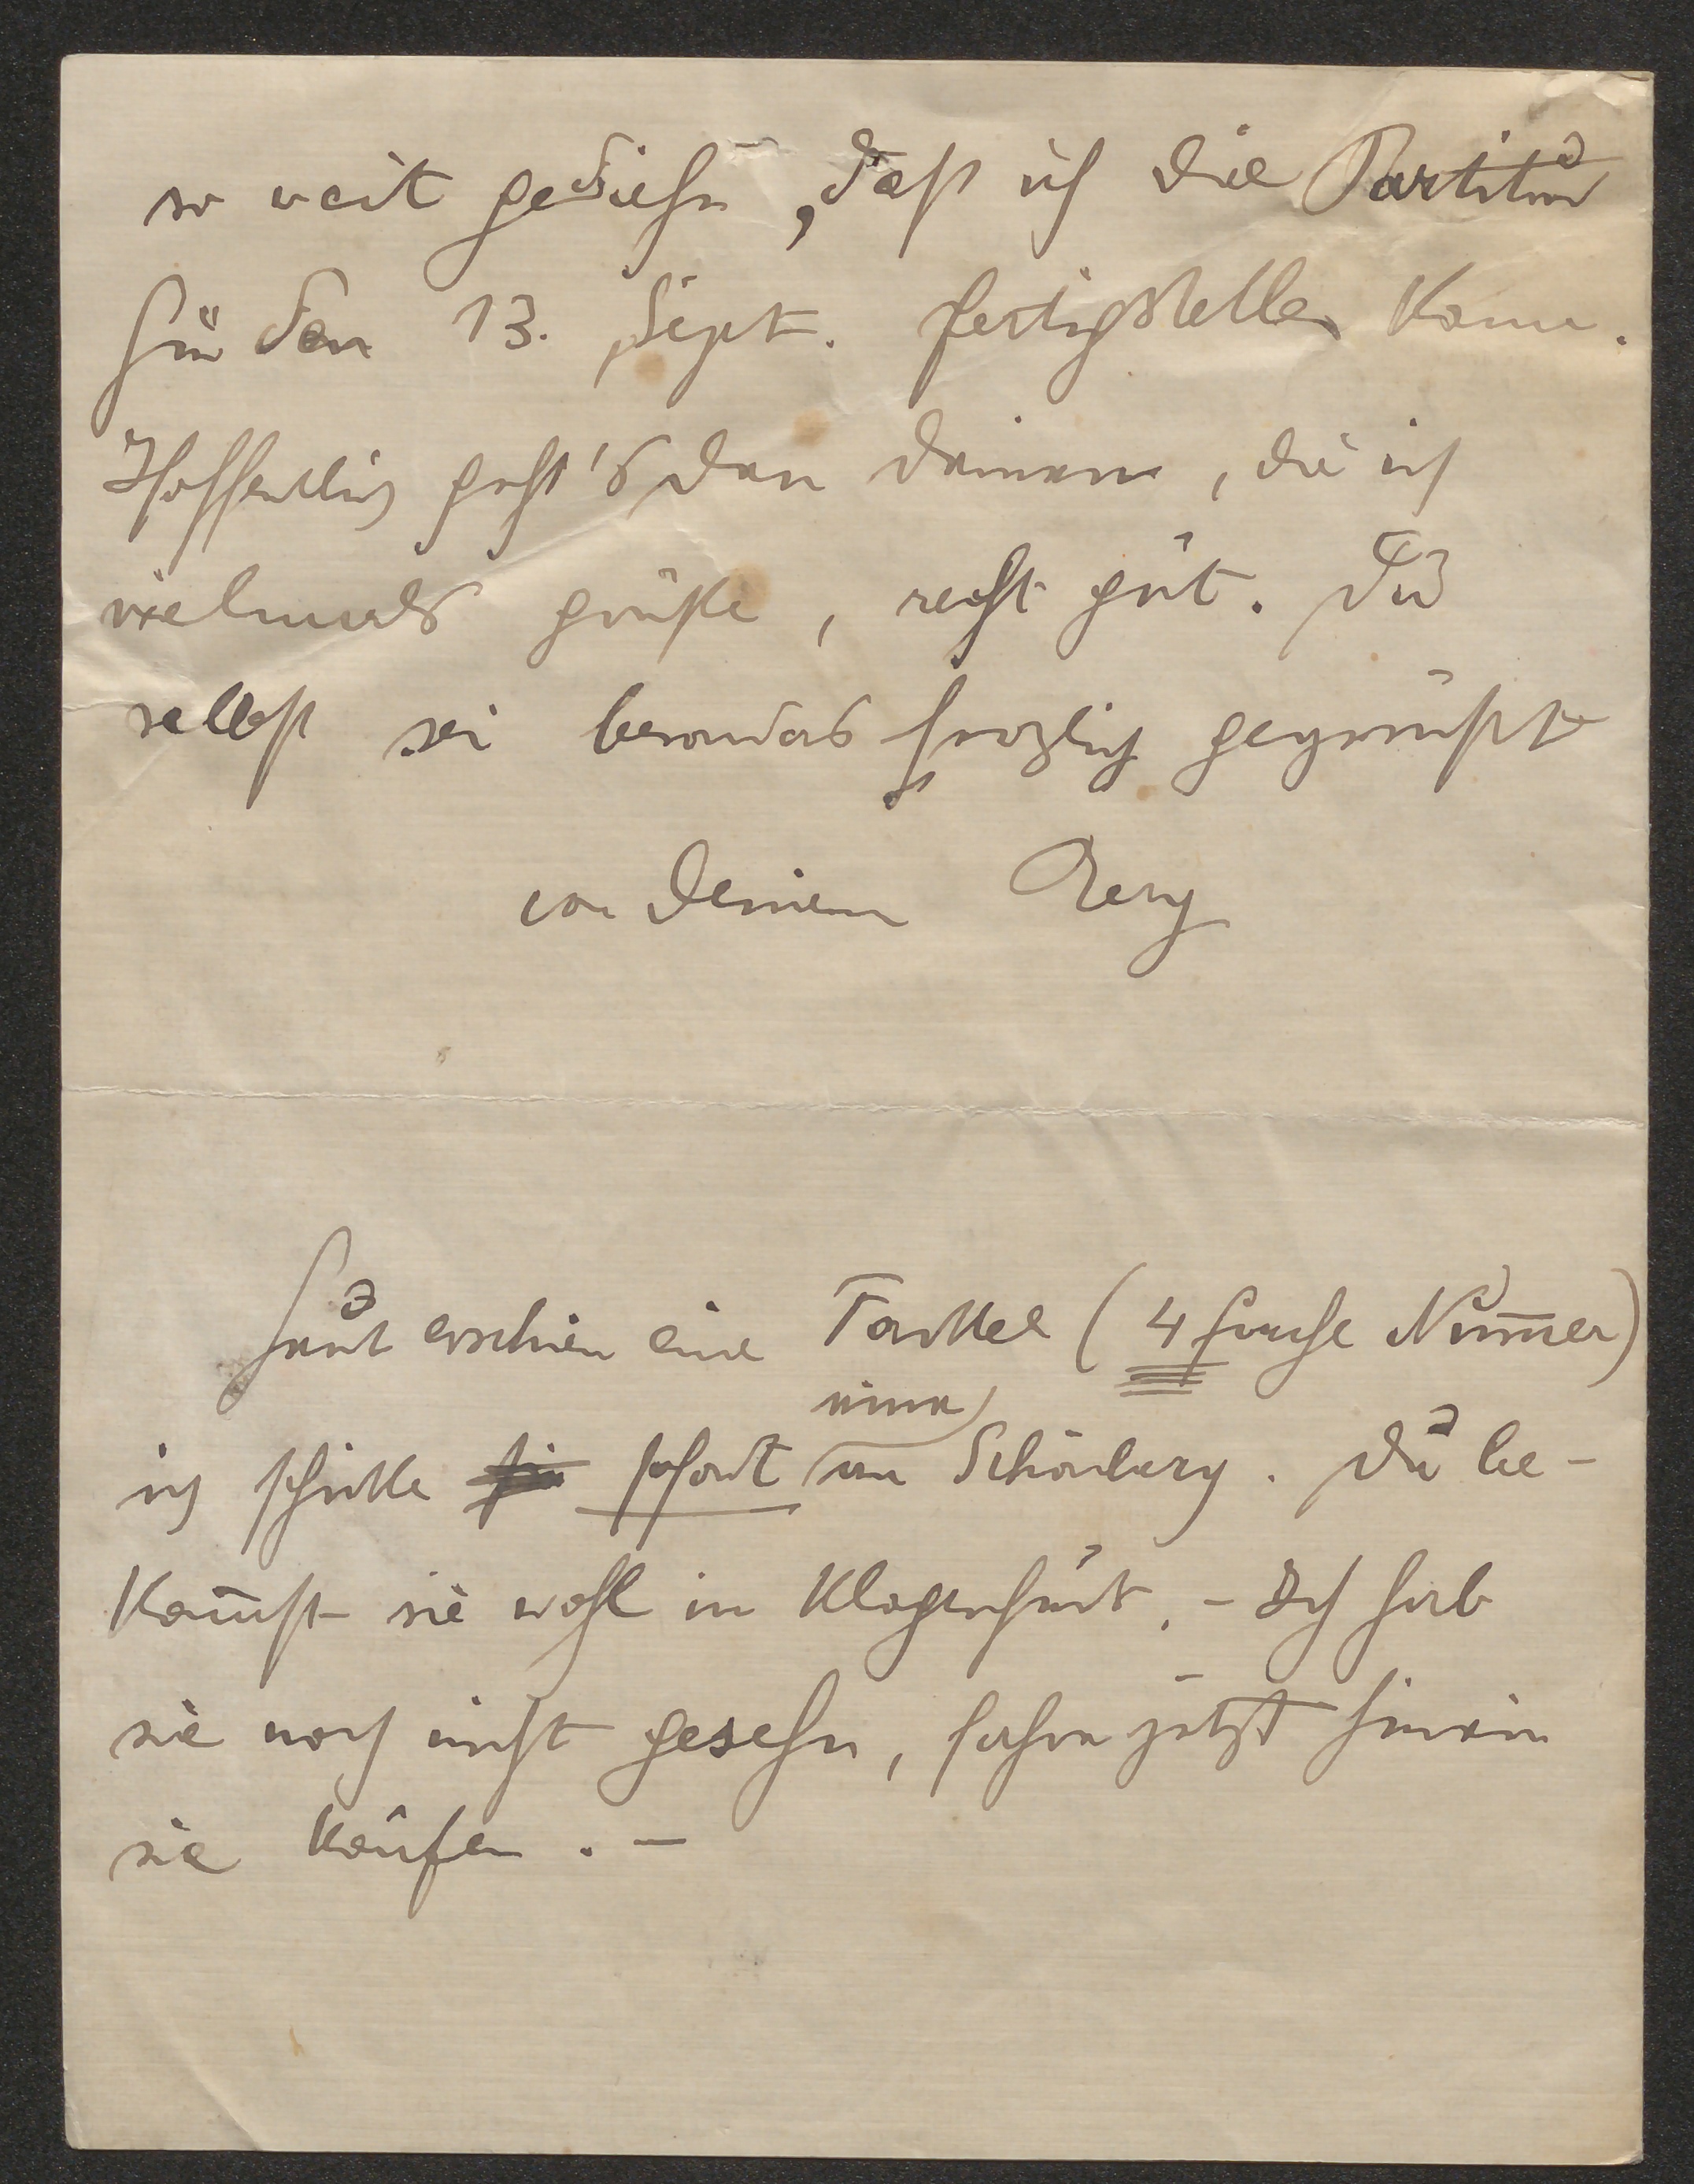 so weit gediehn, daß ich die Partitur
für den 13. Sept. fertigstellen kann.
Hoffentlich geht's den deinen, die ich
vielmals grüße, recht gut. Du
selbst sei besonders herzlich gegrüßt
von deinem Berg
Heut erschien eine Fackel (4fache Num̅er)
ich schicke sie sofort eine an Schönberg. Du be-
kom̅st sie wohl in Klagenfurt. – Ich hab
sie noch nicht gesehn, fahre jetzt hinein
sie kaufen. –